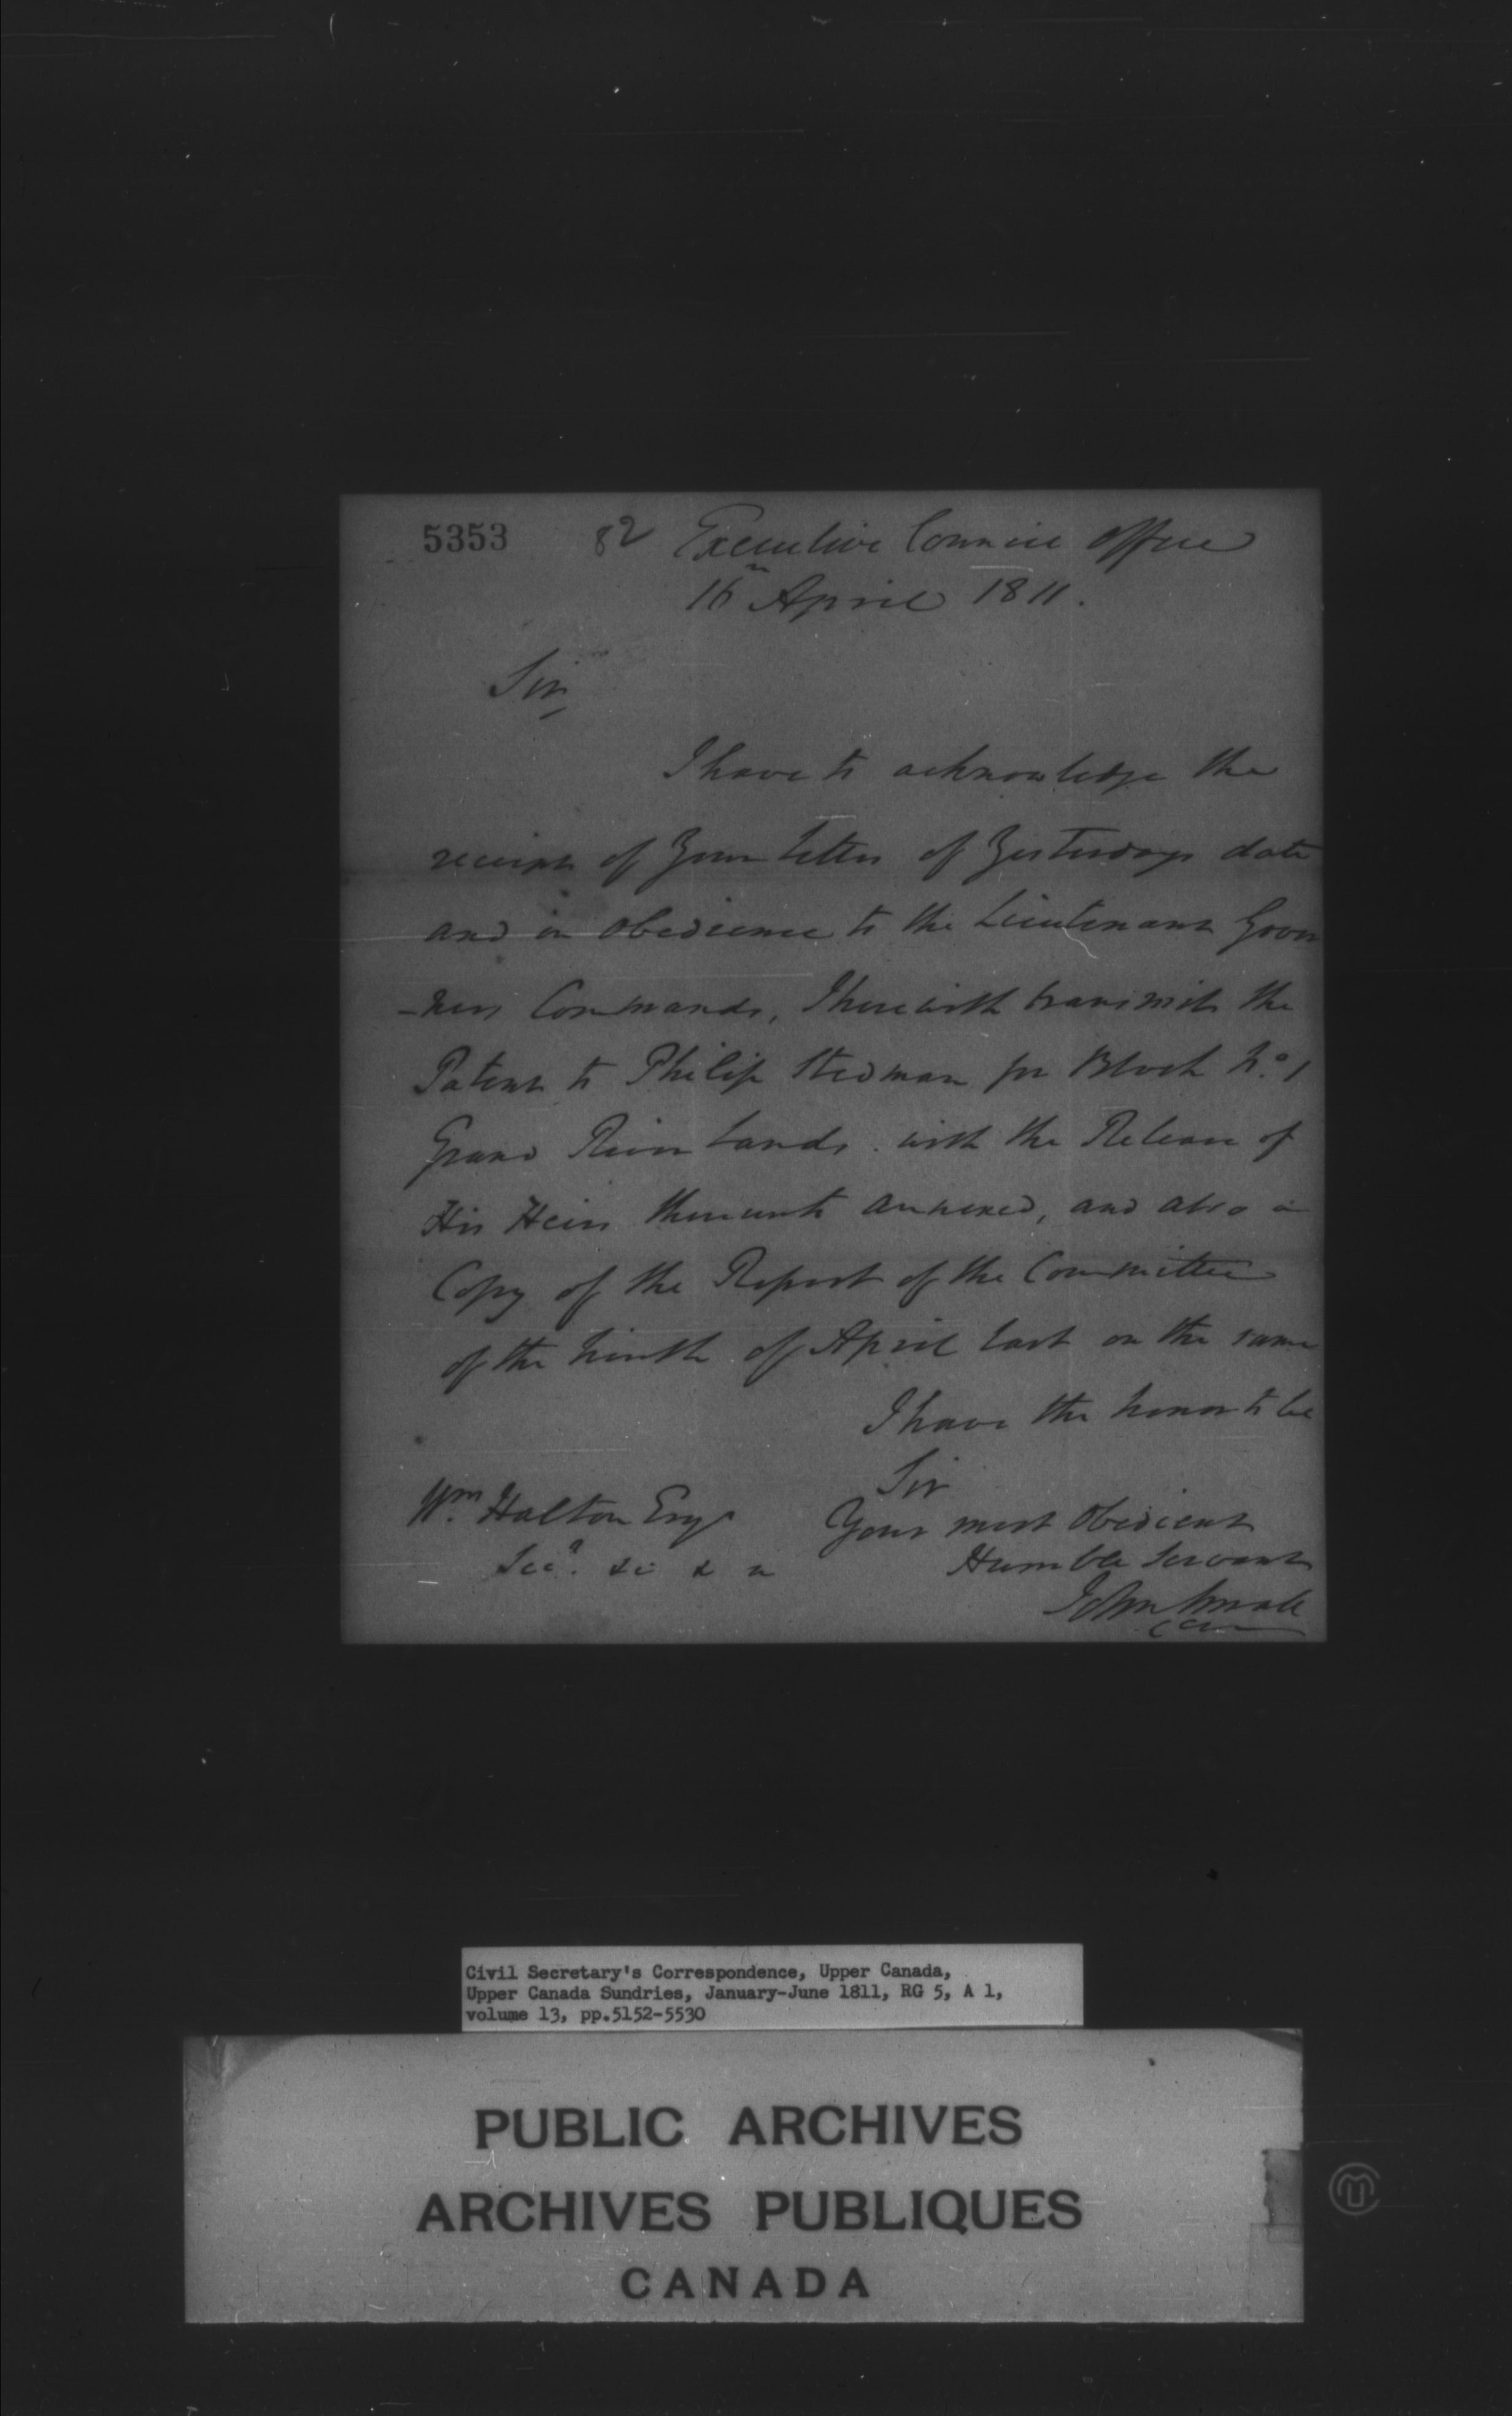 5353 82 Executive Council Office
16th April 1811.
Sir,
I have to acknowledge the
receipt of Your Letter of Yesterdays date
and in obedience to the Lieutenant Gover
-nors Commands, I herewith transmit the
Patent to Philip Stedman for Block No. 1
Grand River Lands. with the Release of
His Heirs thereunto annexed, and also a
Copy of the Report of the Committee
of the Ninth of April last on the same
I have the honor to be
Sir
Wm. Halton Esqr Your most Obedient
Secy. &c & & Humble Servant
John Small
Civil Secretary's Correspondence, Upper Canada,
Upper Canada Sundries, January-June 1811, RG 5, A 1,
volume 13, pp.5152-5530
PUBLIC ARCHIVES
ARCHIVES PUBLIQUES
CANADA